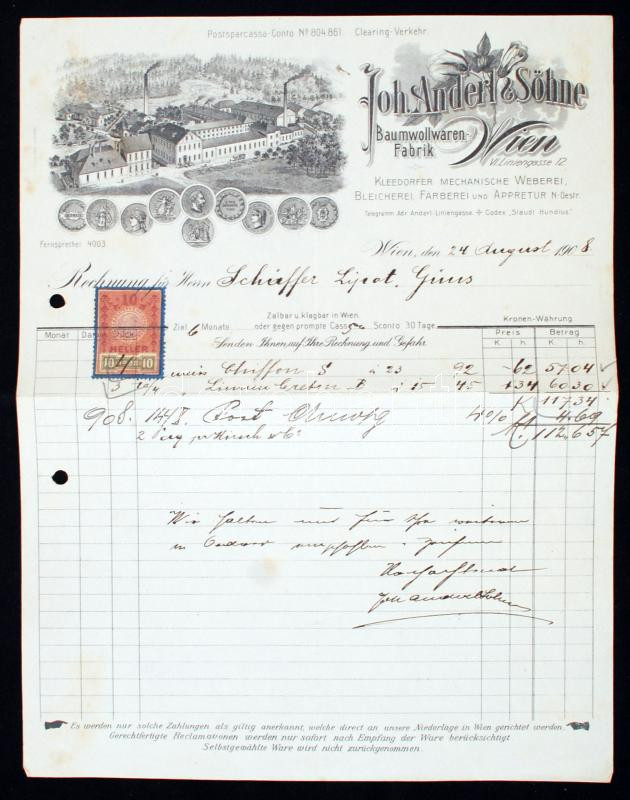 Postsparcassa-Conto Nº 804.861. Clearing-Verkehr.
Joh. Anderl & Söhne
Baumwollwaren-
Fabrik
Wien
VI. Liniengasse 12
Kleedorfer mechanische Weberei,
Bleicherei, Färberei und Appretur N.-Oestr.
Telegramm Adr. Anderl-Liniengasse. Codex "Staudt Hundius."
Fernsprecher 4003.
Wien, den 24 August 1908.
Rechnung für Herrn Schieffer Lipot, Güns
Zalbar u. klagbar in Wien.
Ziel 6 Monate oder gegen prompte Cassa 5% Sconto 30 Tage
Senden Ihnen, auf Ihre Rechnung und Gefahr.
Kronen-Währung
Monat Preis Betrag
K. h. K. h.
10
HELLER
10 10
Chiffon S à 23 92 -62 57.04
à 15 45 134 60.30
K 117.34
908. Post 4% 4.69
112.657
Wir halten uns für
empfohlen
Hochachtend
Joh Anderl & Söhne
Es werden nur solche Zahlungen als giltig anerkannt, welche direct an unsere Niederlage in Wien gerichtet werden.
Gerechtfertigte Reclamationen werden nur sofort nach Empfang der Ware berücksichtigt
Selbstgewählte Ware wird nicht zurückgenommen.